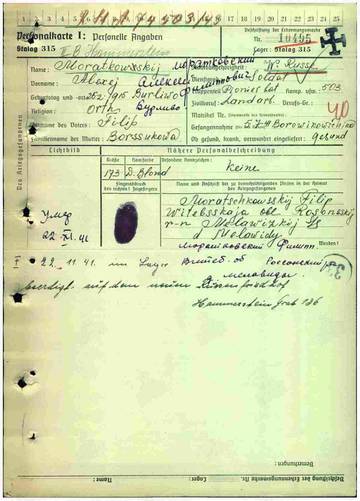 1 2 3 4 5 6 7 8 9 10 11 12 13 14 15 16 17 18 19 20 21 22 23 24 25
Personalkarte I: Personelle Angaben
Beschriftung der Erkennungsmarke
Stalag 315
Nr. 10495
II B Hammerstein
Lager: Stalag 315
Des Kriegsgefangenen
Name: Moratkowskij Моратковский
Staatsangehörigkeit: W. Russe
Vorname: Alexej Алексей Филипович
Dienstgrad: Soldat
Geburtstag und -ort: 1915 Burliwo Бурливо
Truppenteil: Pionier bat Komp. usw.: 503
Religion: Orth.
Zivilberuf: Landarb. Berufs-Gr.: 40
Vorname des Vaters: Filip
Gefangennahme (Ort und Datum): 5.7.41
Familienname der Mutter: Borssukowa
Ob gesund, krank, verwundet eingeliefert: gesund
Lichtbild
Nähere Personalbeschreibung
Größe
Haarfarbe
Besondere Kennzeichen:
173 D. Blond
keine
Fingerabdruck
des rechten Zeigefingers
Name und Anschrift der zu benachrichtigenden Person in der Heimat
des Kriegsgefangenen
Moratschkowskij Filip
Witebsskaja obl Rossonskij
Умер
r-n Melawizkij
22 XI. 41
Melowidy
Моратковский Филип.
22. 11. 41 im Lager
Витеб. об Россонский р.
меловиды
beerdigt auf dem neuen
Hammerstein Grab 136
Beschriftung der Erkennungsmarke Nr.
Lager:
Name: